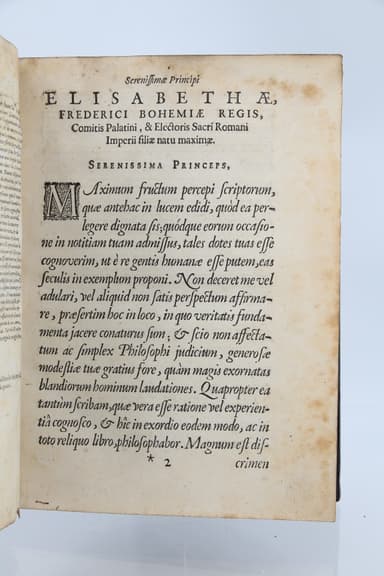 Serenissimæ Principi
ELISABETHÆ,
FREDERICI BOHEMIÆ REGIS,
Comitis Palatini, & Electoris Sacri Romani
Imperii filiæ natu maximæ.
SERENISSIMA PRINCEPS,
MAximum fructum percepi scriptorum,
quæ antehac in lucem edidi, quòd ea per-
legere dignata sis; quódque eorum occasio-
ne in notitiam tuam admissus, tales dotes tuas esse
cognoverim, ut è re gentis humanæ esse putem, eas
seculis in exemplum proponi. Non deceret me vel
adulari, vel aliquid non satis perspectum affirma-
re, præsertim hoc in loco, in quo veritatis funda-
menta jacere conaturus sum; & scio non affecta-
tum ac simplex Philosophi judicium, generosæ
modestiæ tuæ gratius fore, quàm magis exornatas
blandiorum hominum laudationes. Quapropter ea
tantùm scribam, quæ vera esse ratione vel experien-
tiâ cognosco, & hîc in exordio eodem modo, ac in
toto reliquo libro, philosophabor. Magnum est dis-
* 2 crimen